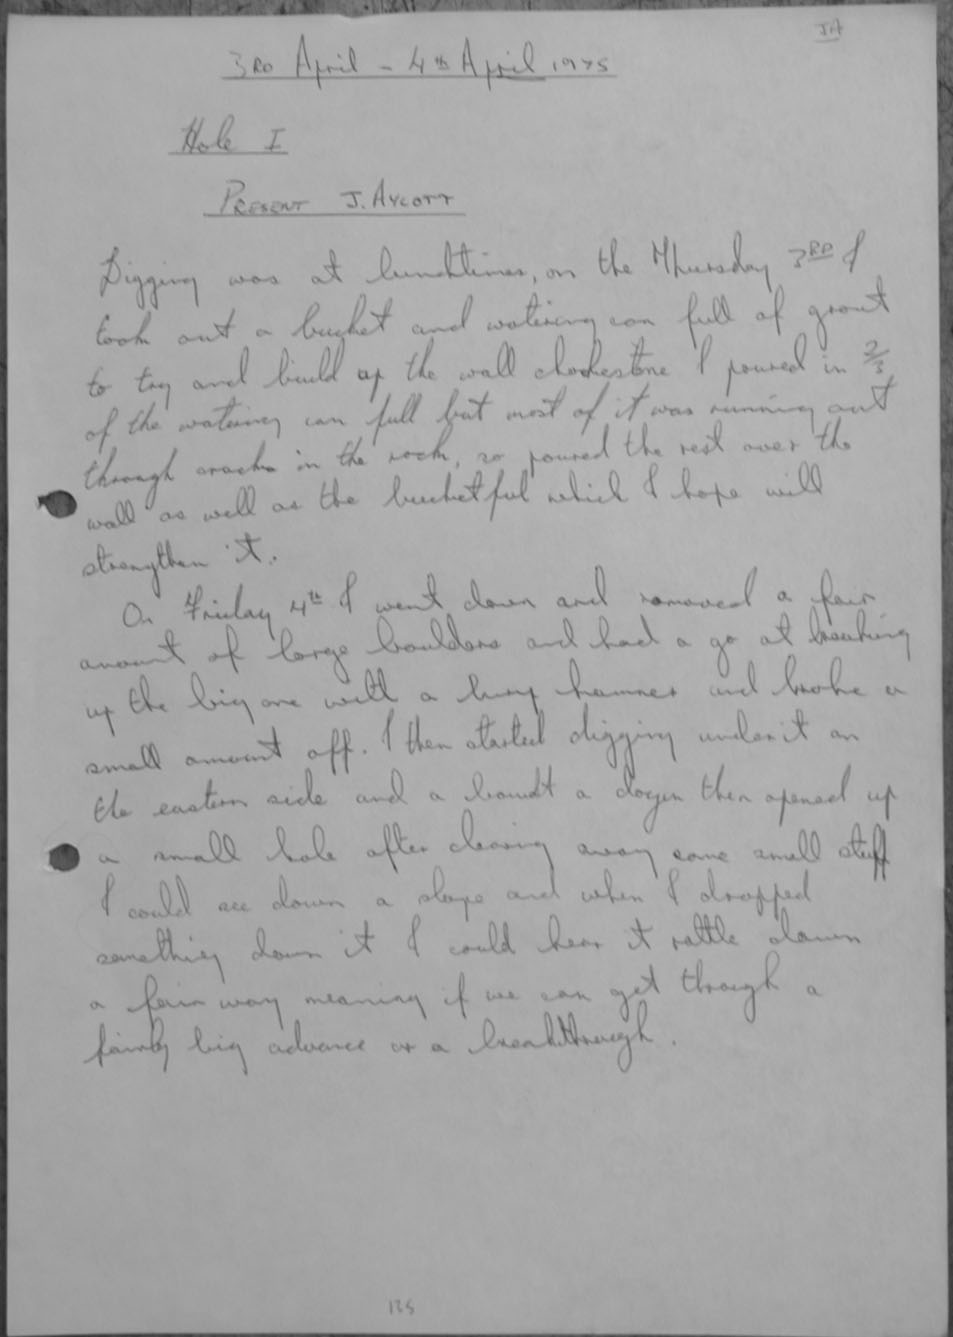 JA
3RD April - 4th April 1975
Hole I
PRESENT J. AYCOTT
Digging was at lunchtimes, on the Thursday 3RD I
took out a bucket and watering can full of grout
to try and build up the wall chokestone I poured in 2/3
of the watering can full but most of it was running out
through cracks in the rock, so poured the rest over the
wall as well as the bucketful which I hope will
strengthen it.
On Friday 4th I went down and removed a fair
amount of large boulders and had a go at breaking
up the big one with a lump hammer and broke a
small amount off. I then started digging under it on
the eastern side and a draught then opened up
a small hole after clearing away some small stuff
I could see down a slope and when I dropped
something down it I could hear it rattle down
a fair way meaning if we can get through a
fairly big advance or a breakthrough.
135